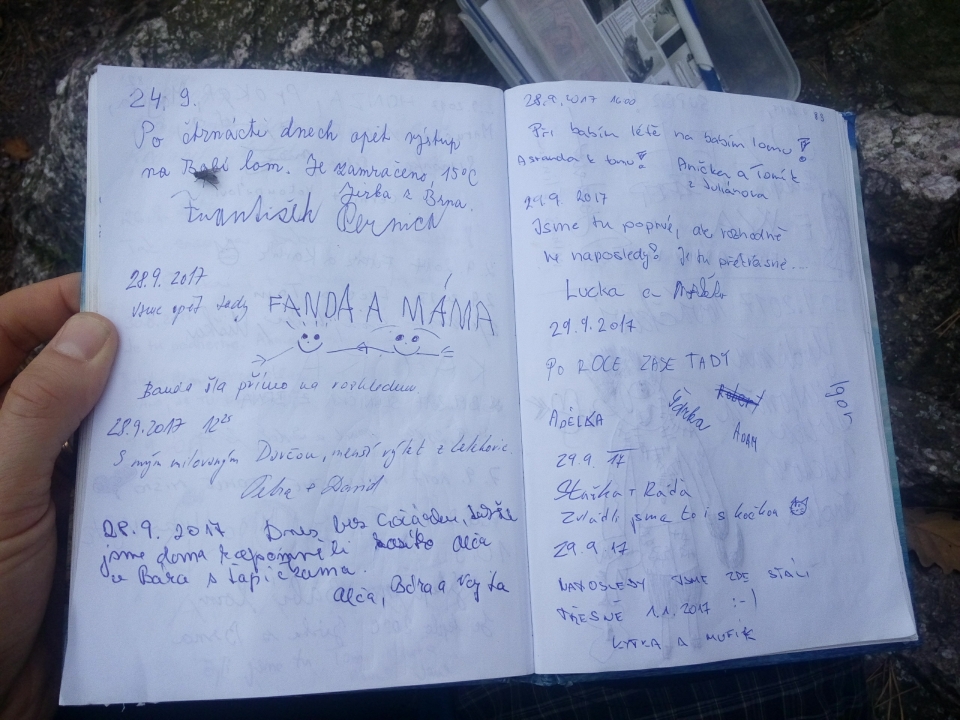 24. 9.
Po čtrnácti dnech opět výstup
na Babí lom. Je zamračeno, 15°C
Jirka z Brna.
František
28.9.2017
Jsme opět tady FANDA A MÁMA
šla přímo na rozhlednu
28.9.2017 12
S mým milovaným menší výlet z Lelekovic.
+ David
28.9. 2017 Dnes bez
jsme doma zapomněli Alča
a Bára s
Alča, Bára a Vojta
83
28.9.2017 1600
Při babím létě na babím lomu!
A sranda k tomu! Anička a Tomík
z Juliánova
29.9. 2017
Jsme tu poprvé, ale rozhodně
ne naposledy! Je tu překrásně...
Lucka a
29.9.2017
PO ROCE ZASE TADY
ADÉLKA Šárka ADAM IGOR
29.9. 17
Staška + Ráďa
Zvládli jsme to i s kočkou
29.9.17
NAPOSLEDY JSME ZDE STÁLI
PŘESNĚ 1.1.2017 :-)
KYTKA A MUFÍK